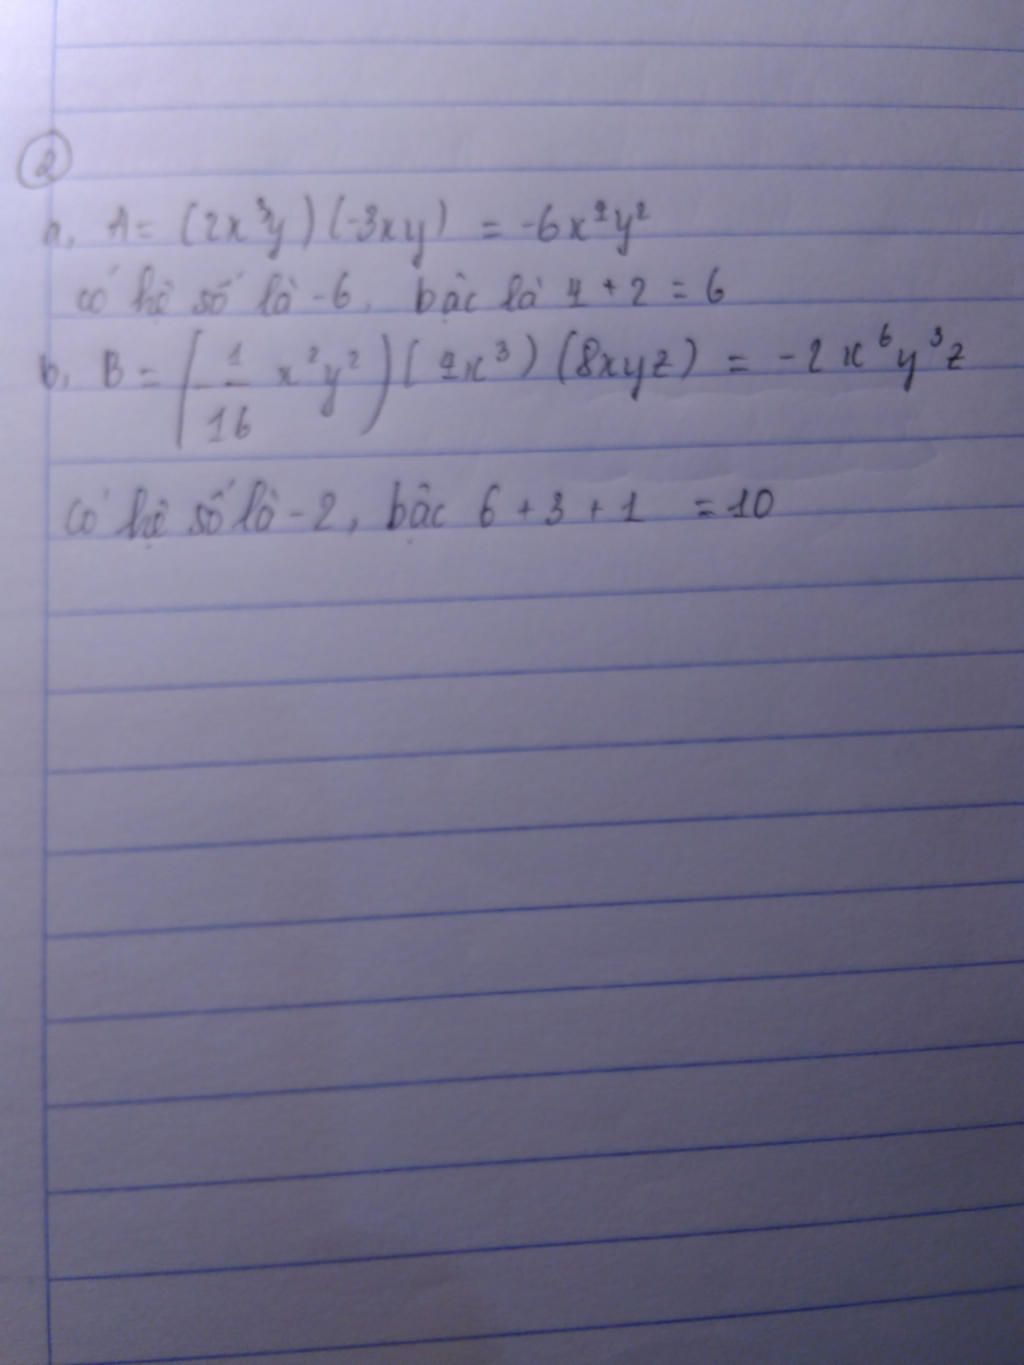 2
a, A = (2x³y)(-3xy) = -6x⁴y²
có hệ số là -6, bậc là 4 + 2 = 6
b, B = (-1/16 x²y²)(4x³)(8xyz) = -2x⁶y³z
có hệ số là -2, bậc 6 + 3 + 1 = 10